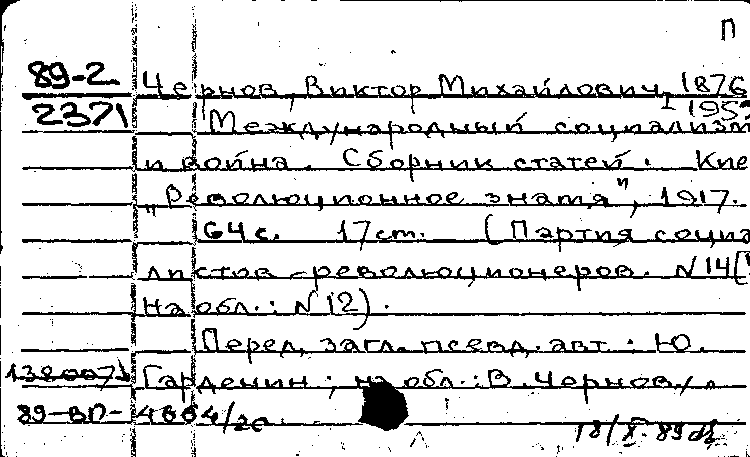 П
89-2 Чернов, Виктор Михайлович, 1876
2371 1952
Международный социализм
и война. Сборник статей. Кие
„Революционное знамя", 1917.
64 с. 17 cm. (Партия социа
листов-революционеров. N 14 [
На обл.: N 12).
Перед загл. псевд. авт.: Ю.
Гарденин; на обл.: В. Чернов.
89-ВП-4664/20
18/X-89